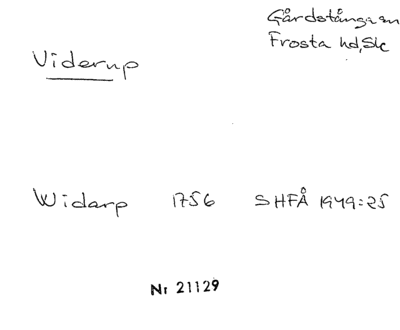 Gårdstånga sn
Frosta hd, Sk
Viderup
Widarp 1756 SHFÅ 1949:25
Nr 21129